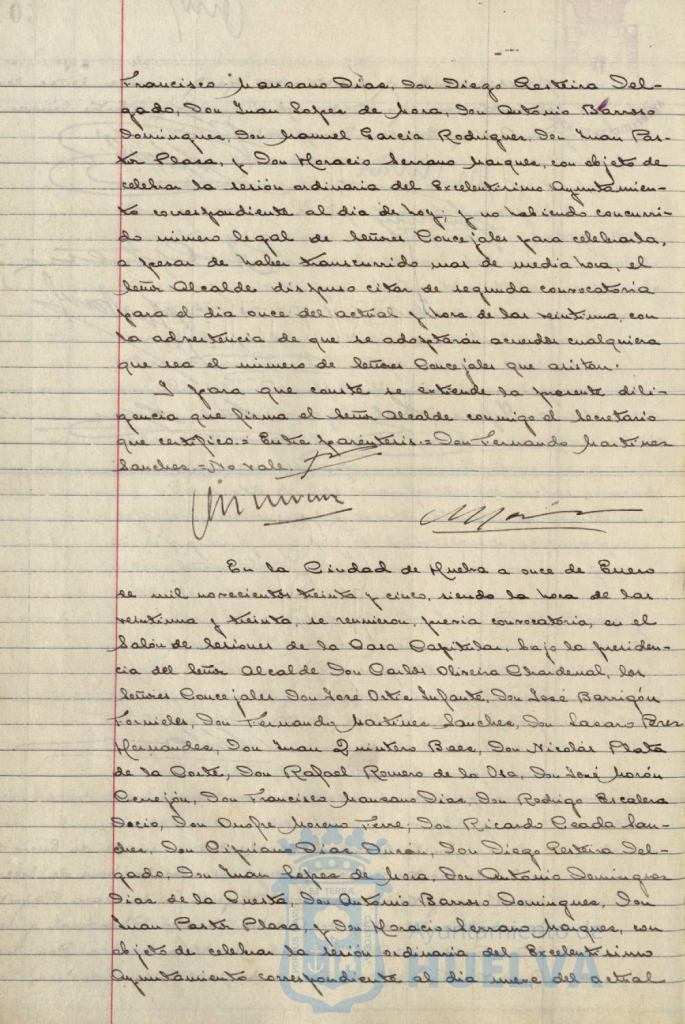 Francisco Manzano Dias, Don Diego Resteira Del-
gado, Don Juan Lopes de Mora, Don Antonio Barroso
Domingues, Don Manuel Garcia Rodrigues, Don Juan Pas-
tor Plasa, y Don Horacio Serrano Marques, con objeto de
celebrar la sesión ordinaria del Excelentisimo Ayuntamien-
to correspondiente al dia de hoy; y no habiendo concurri-
do número legal de Señores Concejales para celebrarla,
a pesar de haber transcurrido mas de media hora, el
Señor Alcalde dispuso citar de segunda convocatoria
para el dia once del actual y hora de las veintiuna, con
la advertencia de que se adoptarán acuerdos cualquiera
que sea el número de Señores Concejales que asistan.
Y para que conste se extiende la presente dili-
gencia que firma el Señor Alcalde conmigo el Secretario
que certifico.= Entre parentesis.= Don Fernando Martines
Sanches.= No vale.
En la Ciudad de Huelva a once de Enero
de mil novecientos treinta y cinco, siendo la hora de las
veintiuna y treinta, se reunieron, previa convocatoria, en el
Salón de Sesiones de la Casa Capitular, bajo la presiden-
cia del Señor Alcalde Don Carlos Oliveira Chardenal, los
Señores Concejales Don José Ortiz Infante, Don José Barrigón
Fornieles, Don Fernando Martines Sanches, Don Lasaro Peres
Hernandes, Don Juan Quintero Baes, Don Nicolás Plata
de la Corte, Don Rafael Romero de la Osa, Don José Morón
Cerrejón, Don Francisco Manzano Dias, Don Rodrigo Escalera
Docio, Don Onofre Moreno Ferre, Don Ricardo Ceada San-
ches, Don Cipriano Dias Durán, Don Diego Resteira Del-
gado, Don Juan Lopes de Mora, Don Antonio Domingues
Dias de la Cuesta, Don Antonio Barroso Domingues, Don
Juan Pastor Plasa, y Don Horacio Serrano Marques, con
objeto de celebrar la sesión ordinaria del Excelentisimo
Ayuntamiento correspondiente al dia nueve del actual
HUELVA